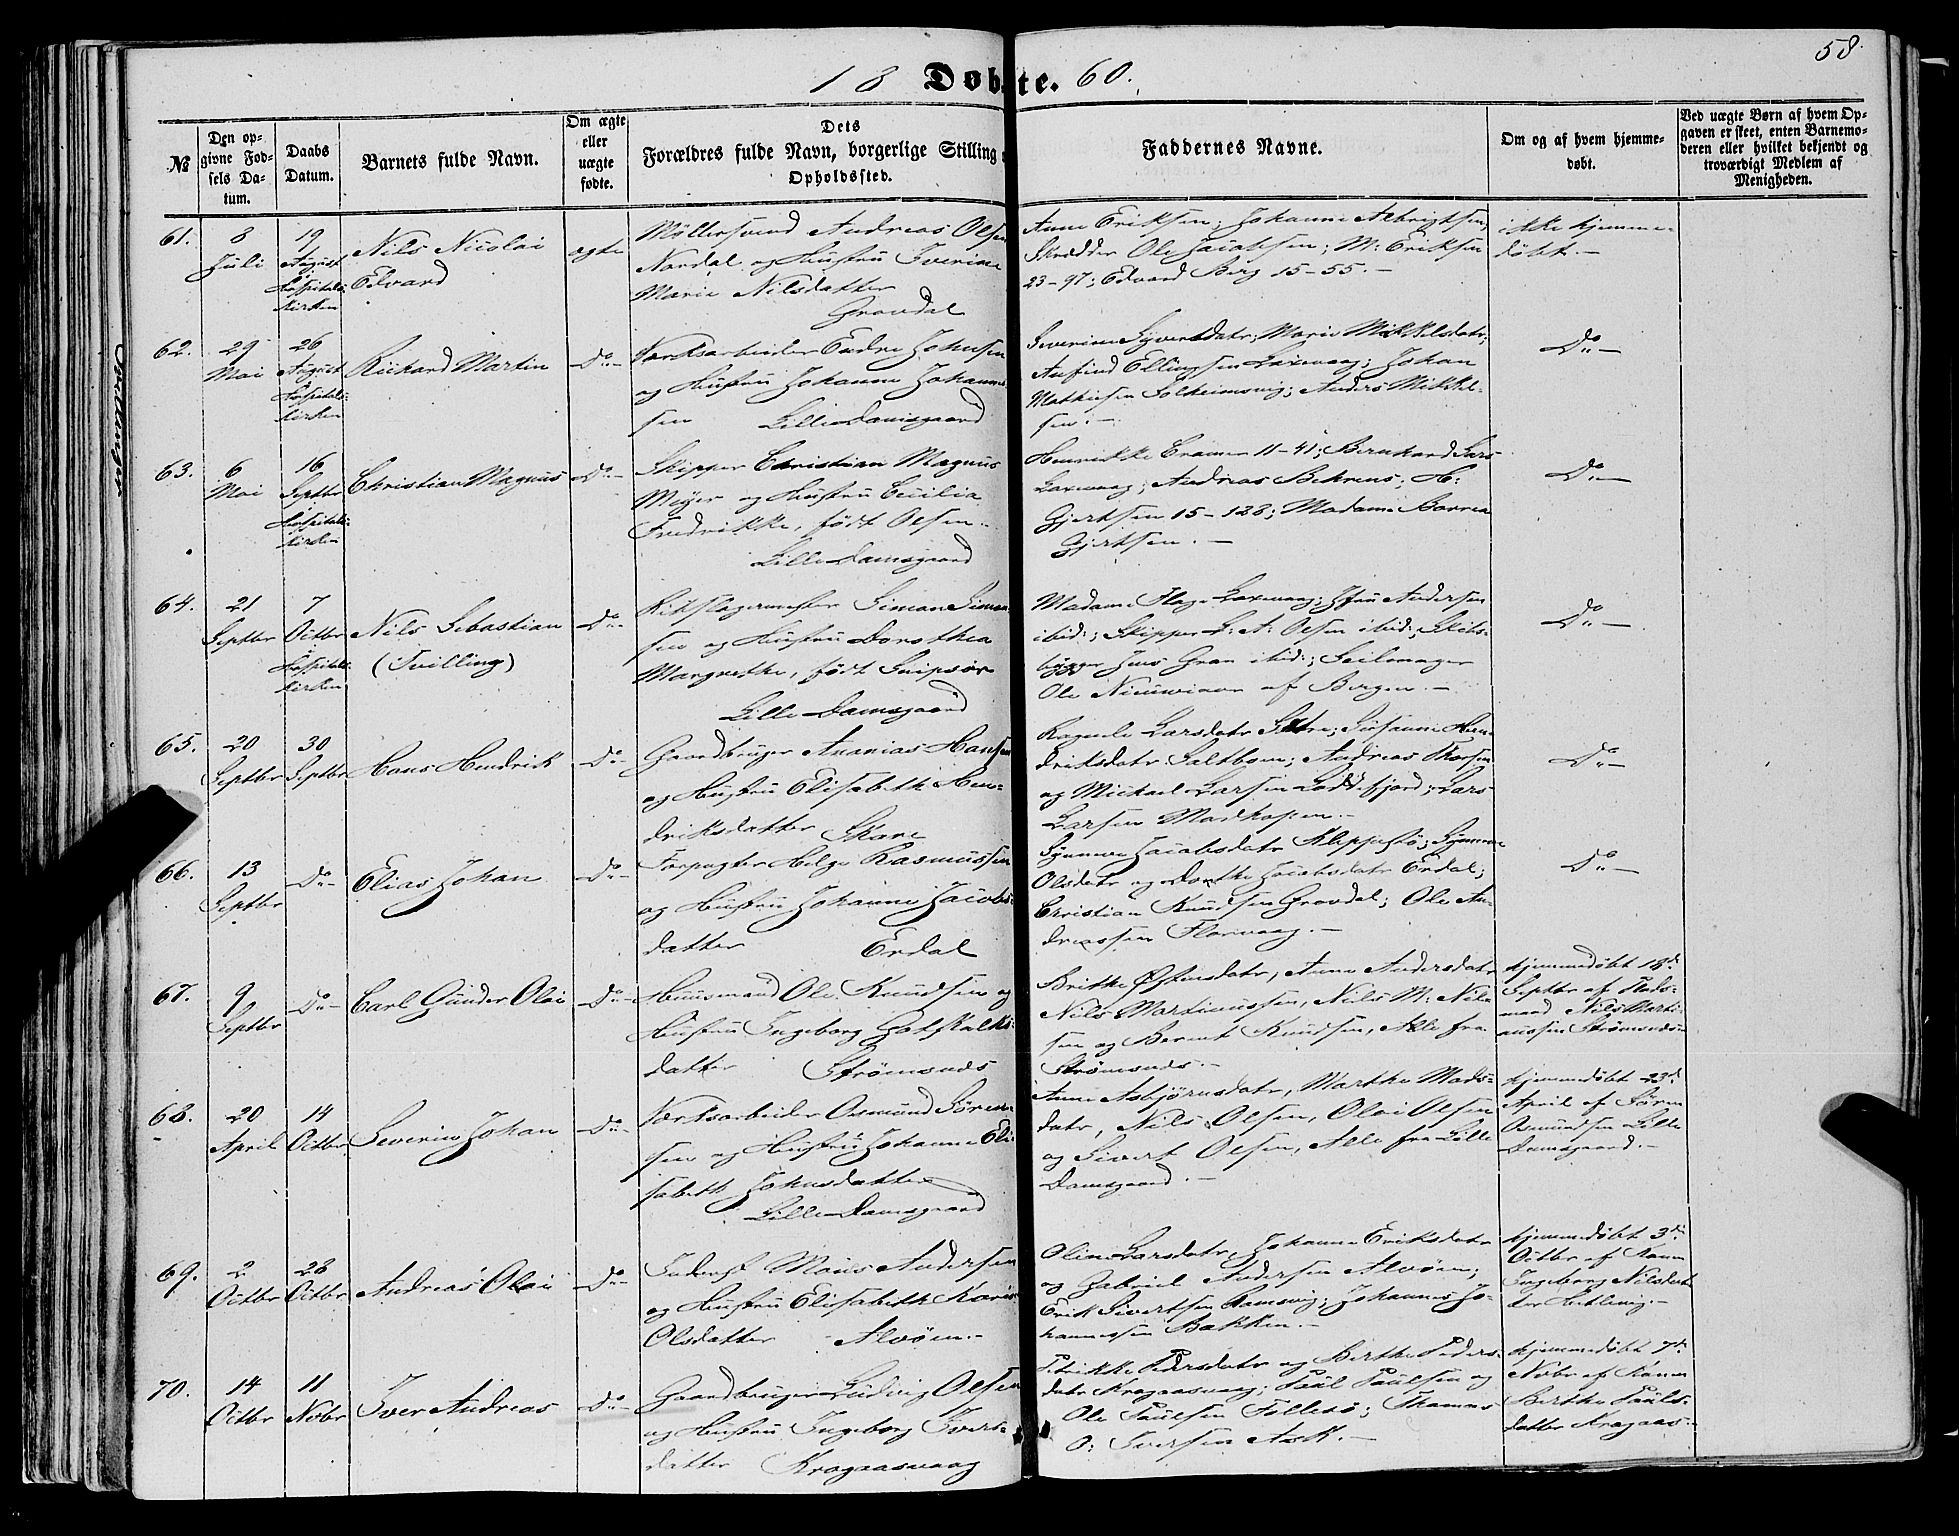 58
18 Døbte. 60.
№
Den opgivne Fødsels Datum.
Daabs Datum.
Barnets fulde Navn.
Om ægte eller uægte fødte.
Dets Forældres fulde Navn, borgerlige Stilling
Opholdssted.
Faddernes Navne.
Om og af hvem hjemmedøbt.
Ved uægte Børn af hvem Opgaven er skeet, enten Barnemoderen eller hvilket bekjendt og troværdigt Medlem af Menigheden.
61.
8 Juli
19 August
Hospitalskirken
Nils Nicolai
Edvard
ægte
Møllersvend Andreas Olsen
Nordal og Hustru Iverine
Marie Nilsdatter
Gravdal
Anne Eriksen; Johanne Albrigtsen;
Skrædder Ole Jacobsen; M: Eriksen
23-97; Edvard Berg 15-55.-
ikke hjemme-
døbt.-
62.
29 Mai
26 August
Hospitalskirken
Rickard Martin
Do-
Værksarbeider Endre Johnsen
og Hustru Johanne Johanne-
sen Lille Damsgaard
Severine Syversdatr; Marie Mikkelsdatr;
Anfind Ellingsen Laxevaag; Johan
Mathiesen Solheimsvig; Anders Mikkel-
sen.-
Do-
63.
6 Mai
16 Septbr
Hospitalskirken
Christian Magnus
Do-
Skipper Christian Magnus
Meyer og Hustru Cecilia
Fredrikke, født Olsen-
Lille Damsgaard
Henrikke Cramer 11-41; Bernhard Lars
Laxevaag; Andreas Behrens; H:
Gjertsen 15-128; Madame
Gjertsen.-
Do-
64.
21 Septbr
7 Octbr
Hospitalskirken
Nils Sebastian
(Tvilling)
Do-
Rebslagermester Simon Simon-
sen og Hustru Dorothea
Margrethe, født
Lille Damsgaard
Madame Flage Laxevaag; Jfru Andersen
ibid:; Skipper L: A: Olsen ibid:; Skibs-
bygger Jens Gran ibid:; Seilmager
Ole af Bergen.-
Do-
65.
20 Septbr
30 Septbr
Hans Hendrick
Do-
Gaardbruger Ananias Hansen
og Hustru Elisabeth Hen-
driksdatter Skare
Larsdatr; Susanne Hen-
driksdatr Saltbom; Andreas
og Michael Larsen Loddefjord; Lars
Larsen
Do-
66.
13 Septbr
Do-
Elias Johan
Do-
Forpagter Helge Rasmussen
og Hustru Johanne Jacobs-
datter Erdal
Synneve Jacobsdatr Kleppestø; Synneve
Olsdatr og Dorthe Jacobsdatr Erdal;
Christian Knudsen Gravdal; Ole An-
dreassen Florvaag.-
Do-
67.
9 Septbr
Do-
Carl Gunder Olai
Do-
Huusmand Ole Knudsen og
Hustru Ingeborg Gotskalks-
datter Strømsnæs
Brithe Østensdatr, Anne Andersdatr
Nils Martinussen, Niels M: Nils-
sen og Berent Knudsen, Alle fra
Strømsnæs.-
hjemmedøbt 18de
Septbr af
mand Nils Marti-
nussen Strømsnæs-
68.
20 April
14 Octbr
Severin Johan
Do-
Værksarbeider Osmund Søren-
sen og Hustru Johanne Eli-
sabeth Johnsdatter
Lille Damsgaard
Anne Asbjørnsdatr, Marthe Mads-
datr, Nils Olsen, Olai Olsen
og Sivert Olsen, Alle fra Lille
Damsgaard.-
hjemmedøbt 23de
April af Søren
Osmundsen Lille
Damsgaard.-
69.
2 Octbr
28 Octbr
Andreas Olai
Do-
Inderst Mons Andersen
og Hustru Elisabeth Karine
Olsdatter Alvøen.-
Oline Larsdatr, Johanne Eriksdatr
og Gabriel Andersen Alvøen;
Erik Sivertsen Ramsvig; Johannes Jo-
hannessen Bakken.-
hjemmedøbt 3de
Octbr af Kone
Ingeborg Nilsdat-
ter Hetlevig.-
70.
14 Octbr
11 Novbr
Iver Andreas
Do-
Gaardbruger Ludvig Olsen
og Hustru Ingeborg Ivers-
datter Krogaasvaag
Petrikke Pedersdatr og Berthe Peders-
datr Krogaasvaag; Paul Paulsen og
Ole Paulsen Follesø; Thomas
O: Iversen Ask.-
hjemmedøbt 7de
Novbr af Kone
Berthe Pauls-
datter Krogaas-